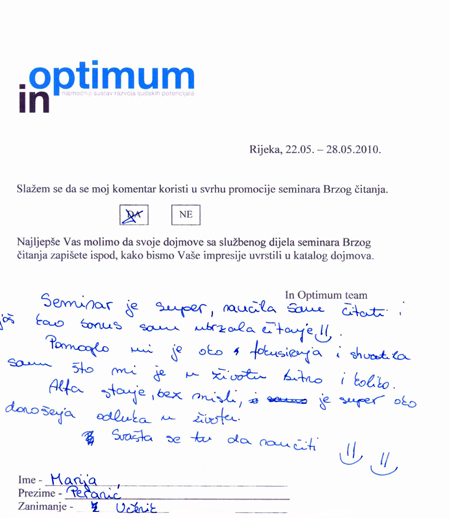 optimum
in
najmoćniji sustav razvoja ljudskih potencijala
Rijeka, 22.05. – 28.05.2010.
Slažem se da se moj komentar koristi u svrhu promocije seminara Brzog čitanja.
DA NE
Najljepše Vas molimo da svoje dojmove sa službenog dijela seminara Brzog
čitanja zapišete ispod, kako bismo Vaše impresije uvrstili u katalog dojmova.
In Optimum team
Seminar je super, naučila sam čitati i
još kao bonus sam ubrzala čitanje
Pomoglo mi je oko fokusiranja i shvatila
sam što mi je u životu bitno i koliko.
Alfa stanje, bez misli, je super oko
donošenja odluka u životu.
Svašta se tu da naučiti
Ime - Marija
Prezime -
Zanimanje - Učenik